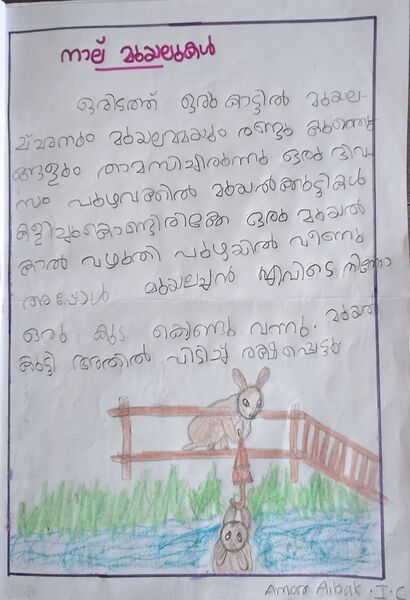 നാല് മുയലുകൾ
ഒരിടത്ത് ഒരു കാട്ടിൽ മുയല-
ച്ചനും മുയലമ്മയും രണ്ടു കുഞ്ഞു
ങ്ങളും താമസിച്ചിരുന്നു ഒരു ദിവ
സം പുഴവക്കിൽ മുയൽക്കുട്ടികൾ
കളിച്ചുകൊണ്ടിരിക്കേ ഒരു മുയൽ
കാൽ വഴുതി പുഴയിൽ വീണു
അപ്പോൾ മുയലച്ചൻ എവിടെ നിന്നോ
ഒരു കുട കൊണ്ടു വന്നു. മുയൽ
കുട്ടി അതിൽ പിടിച്ച് രക്ഷപ്പെട്ടു
Aibak. I. C